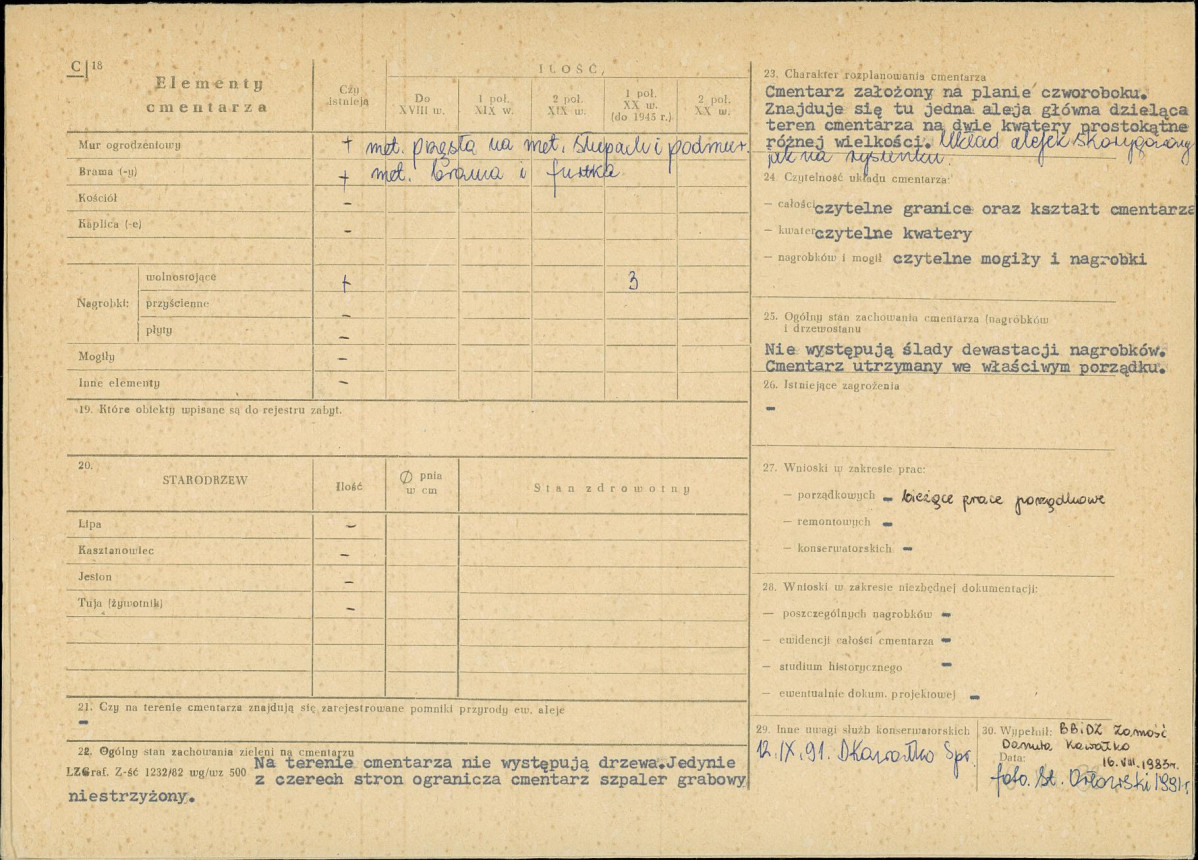 C 18
Elementy
cmentarza
Czy
istnieją
ILOŚĆ,
Do
XVIII w.
1 poł.
XIX w.
2 poł.
XIX w.
1 poł.
XX w.
(do 1945 r.)
2 poł.
XX w.
Mur ogrodzeniowy + met. przęsła na met. słupach i podmur.
Brama (-y) + met. brama i furtka.
Kościół –
Kaplica (-e) –
Nagrobki:
wolnostojące + 3
przyścienne –
płyty –
Mogiły –
Inne elementy –
19. Które obiekty wpisane są do rejestru zabyt.
20.
STARODRZEW
Ilość
Ø pnia
w cm
Stan zdrowotny
Lipa –
Kasztanowiec –
Jesion –
Tuja (żywotnik) –
21. Czy na terenie cmentarza znajdują się zarejestrowane pomniki przyrody ew. aleje
–
22. Ogólny stan zachowania zieleni na cmentarzu
LZGraf. Z-ść 1232/82 wg/wz 500
Na terenie cmentarza nie występują drzewa.Jedynie
z czerech stron ogranicza cmentarz szpaler grabowy
niestrzyżony.
23. Charakter rozplanowania cmentarza
Cmentarz założony na planie czworoboku.
Znajduje się tu jedna aleja główna dzieląca
teren cmentarza na dwie kwatery prostokątne
różnej wielkości. Układ alejek skorygowany
jak na rysunku.
24. Czytelność układu cmentarza:
– całości czytelne granice oraz kształt cmentarza
– kwater czytelne kwatery
– nagrobków i mogił czytelne mogiły i nagrobki
25. Ogólny stan zachowania cmentarza (nagrobków
i drzewostanu
Nie występują ślady dewastacji nagrobków.
Cmentarz utrzymany we właściwym porządku.
26. Istniejące zagrożenia
–
27. Wnioski w zakresie prac:
– porządkowych – bieżące prace porządkowe
– remontowych –
– konserwatorskich –
28. Wnioski w zakresie niezbędnej dokumentacji:
– poszczególnych nagrobków –
– ewidencji całości cmentarza –
– studium historycznego –
– ewentualnie dokum. projektowej –
29. Inne uwagi służb konserwatorskich
12.IX.91. DKawałko Spr.
30. Wypełnił: BBiDZ Zamość
Danuta Kawałko
Data: 16.VIII.1983r.
foto. St. Orłowski 1991r